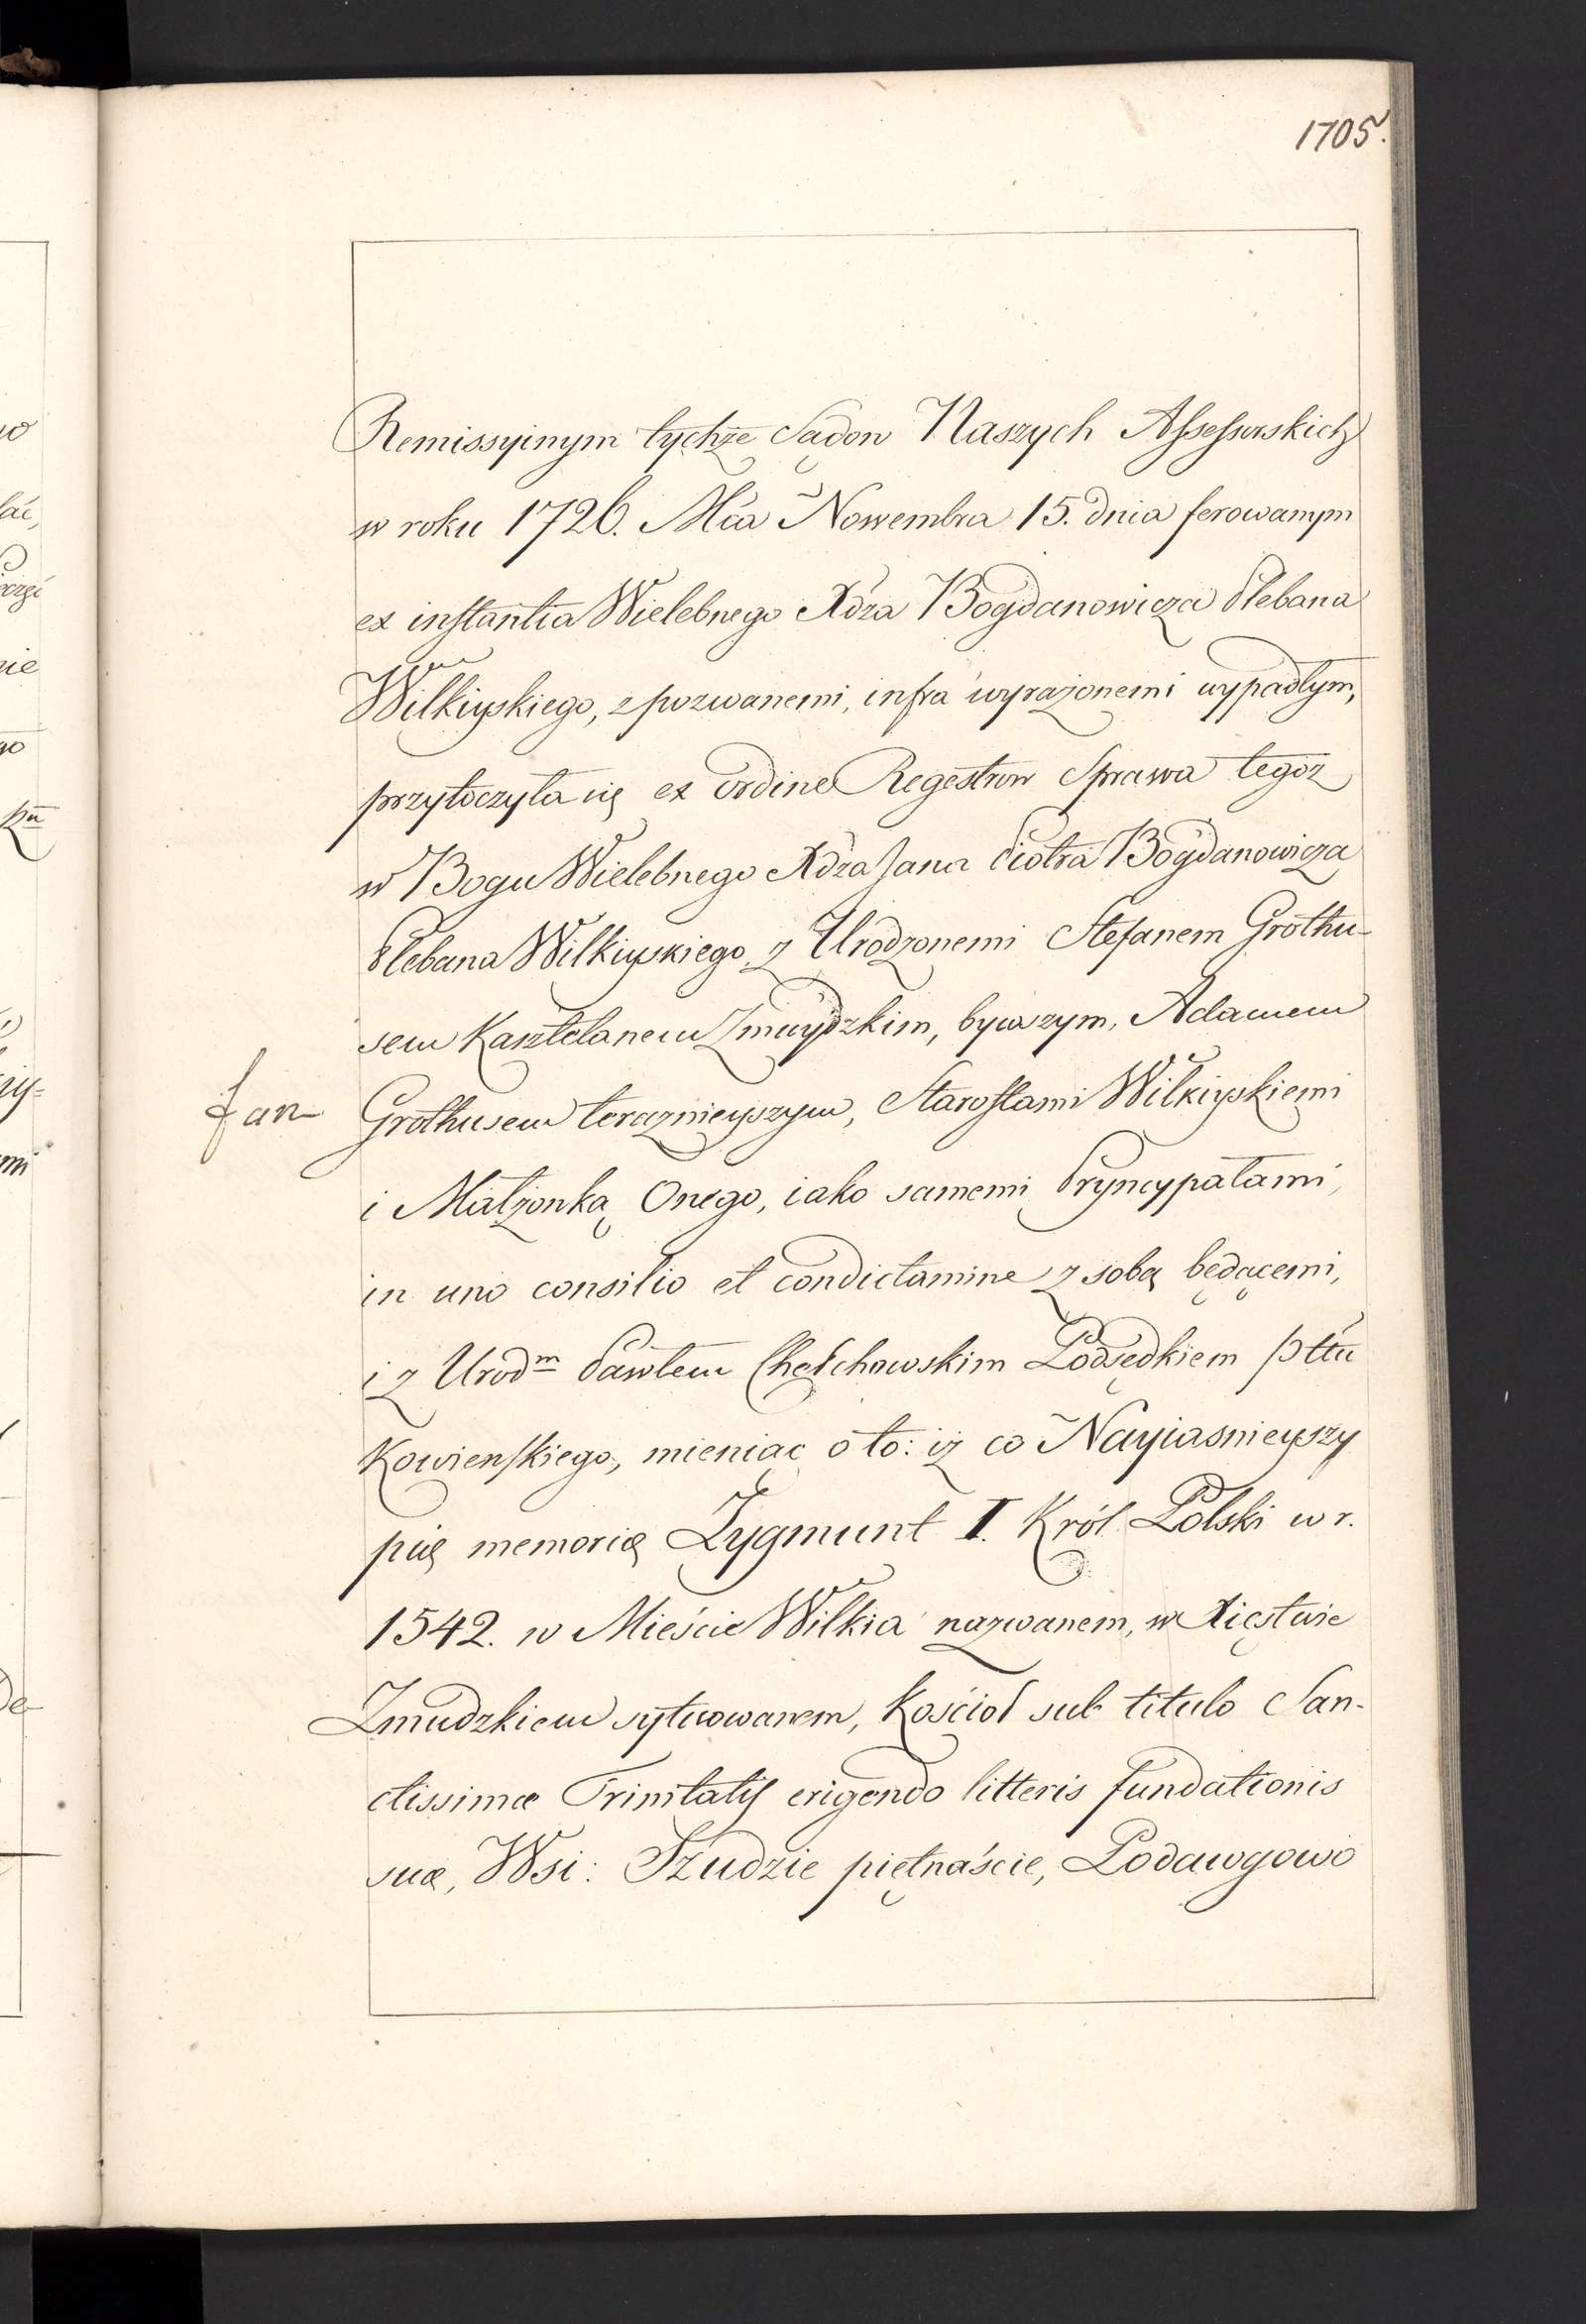 1705.
Remissyinym tychże Sądow Naszych Assessorskich
w roku 1726. Mca Nowembra 15. dnia ferowanym
ex instantia Wielebnego Xdza Bogdanowicza Plebana
Wilkiyskiego, z pozwanemi, infra wyrażonemi wypadłym,
przytoczyła się ex ordine Regestrow Sprawa tegoż
w Bogu Wielebnego Xdza Jana Piotra Bogdanowicza
Plebana Wilkiyskiego z Urodzonemi Stefanem Grothu-
sem Kasztelanem Zmuydzkim, bywszym, Adamem
Grothusem teraznieyszym, Starostami Wilkiyskiemi
i Małżonką Onego, iako samemi Pryncypałami,
in uno consilio et condictamine z sobą będącemi,
i z Urodm Pawłem Chełchowskim Podsędkiem pttu
Kowienskiego, mieniąc o to: iż co Nayiasnieyszy
piæ memoriæ Zygmunt I. Król Polski w r.
1542. w Mieście Wilkia nazwanem, w Xięstwie
Zmudzkiem sytuowanem, Kościoł sub titulo San-
ctissimæ Trinitatis erigendo litteris fundationis
suæ, Wsi: Szudzie piętnaście, Podawgowo